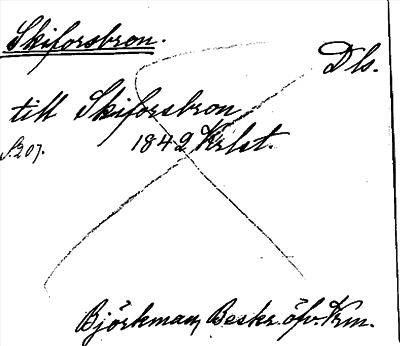 Skiforsbron.
Dls.
till Skiforsbron
S. 207. 1842 Krlst.
Björkman, Beskr. öfv. Vrm.